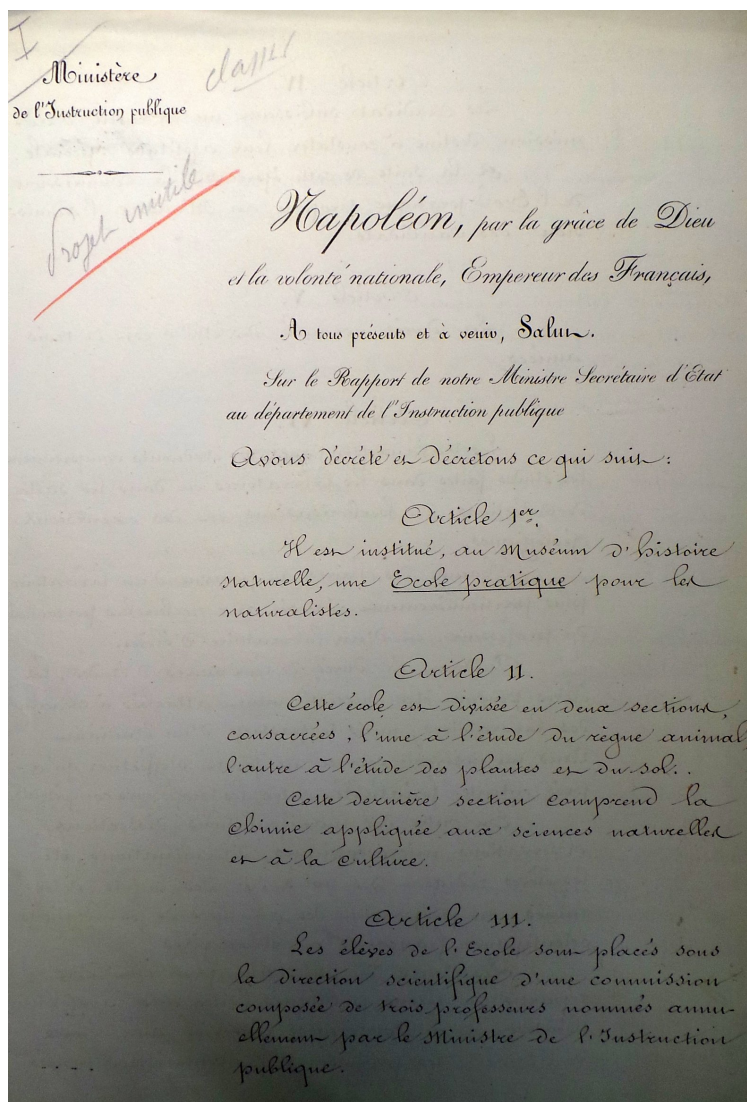 I
classer
Ministère
de l'Instruction publique
Projet inutile
Napoléon, par la grâce de Dieu
et la volonté nationale, Empereur des Français,
A tous présents et à venir, Salut.
Sur le Rapport de notre Ministre Secrétaire d'Etat
au département de l'Instruction publique
Avons décrété et décrétons ce qui suit :
Article 1er.
Il est institué, au Muséum d'histoire
naturelle, une Ecole pratique pour les
naturalistes.
Article II.
Cette école est divisée en deux sections,
consacrées ; l'une à l'étude du règne animal
l'autre à l'étude des plantes et du sol.
Cette dernière section comprend la
Chimie appliquée aux sciences naturelles
et à la culture.
Article III.
Les élèves de l'Ecole sont placés sous
la direction scientifique d'une commission
composée de trois professeurs nommés annu-
ellement par le Ministre de l'Instruction
publique.